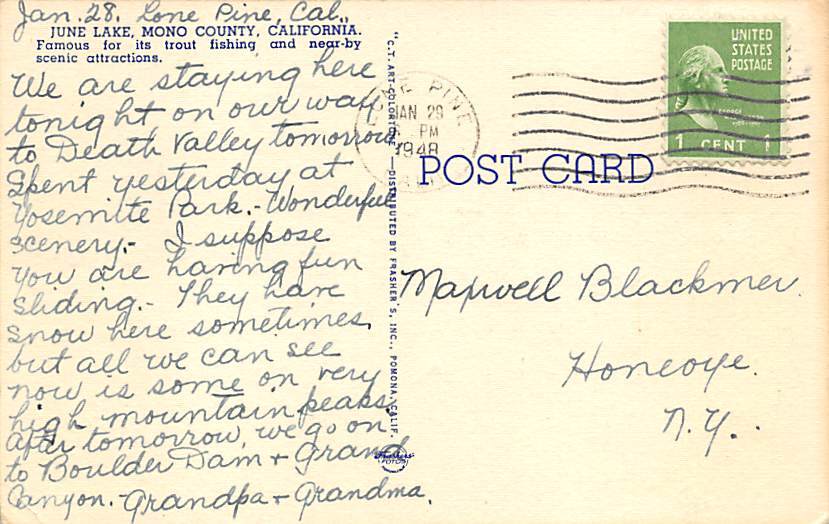 Jan. 28. Lone Pine, Cal.,
JUNE LAKE, MONO COUNTY, CALIFORNIA.
Famous for its trout fishing and near-by
scenic attractions.
We are staying here
tonight on our way
to Death Valley tomorrow
Spent yesterday at
Yosemite Park.- Wonderful
scenery.- I suppose
you are having fun
sliding.- They have
snow here sometimes,
but all we can see
now is some on very
high mountain peaks.
After tomorrow, we go on
to Boulder Dam + Grand
Canyon.- Grandpa + Grandma.
"C.T. ART-COLORTONE"—DISTRIBUTED BY FRASHER'S, INC., POMONA, CALIF.
Frashers
FOTOS
LONE PINE
JAN 29
PM
1948
POST CARD
UNITED
STATES
POSTAGE
1 CENT 1
Maxwell Blackmer.
Honeoye.
N.Y..